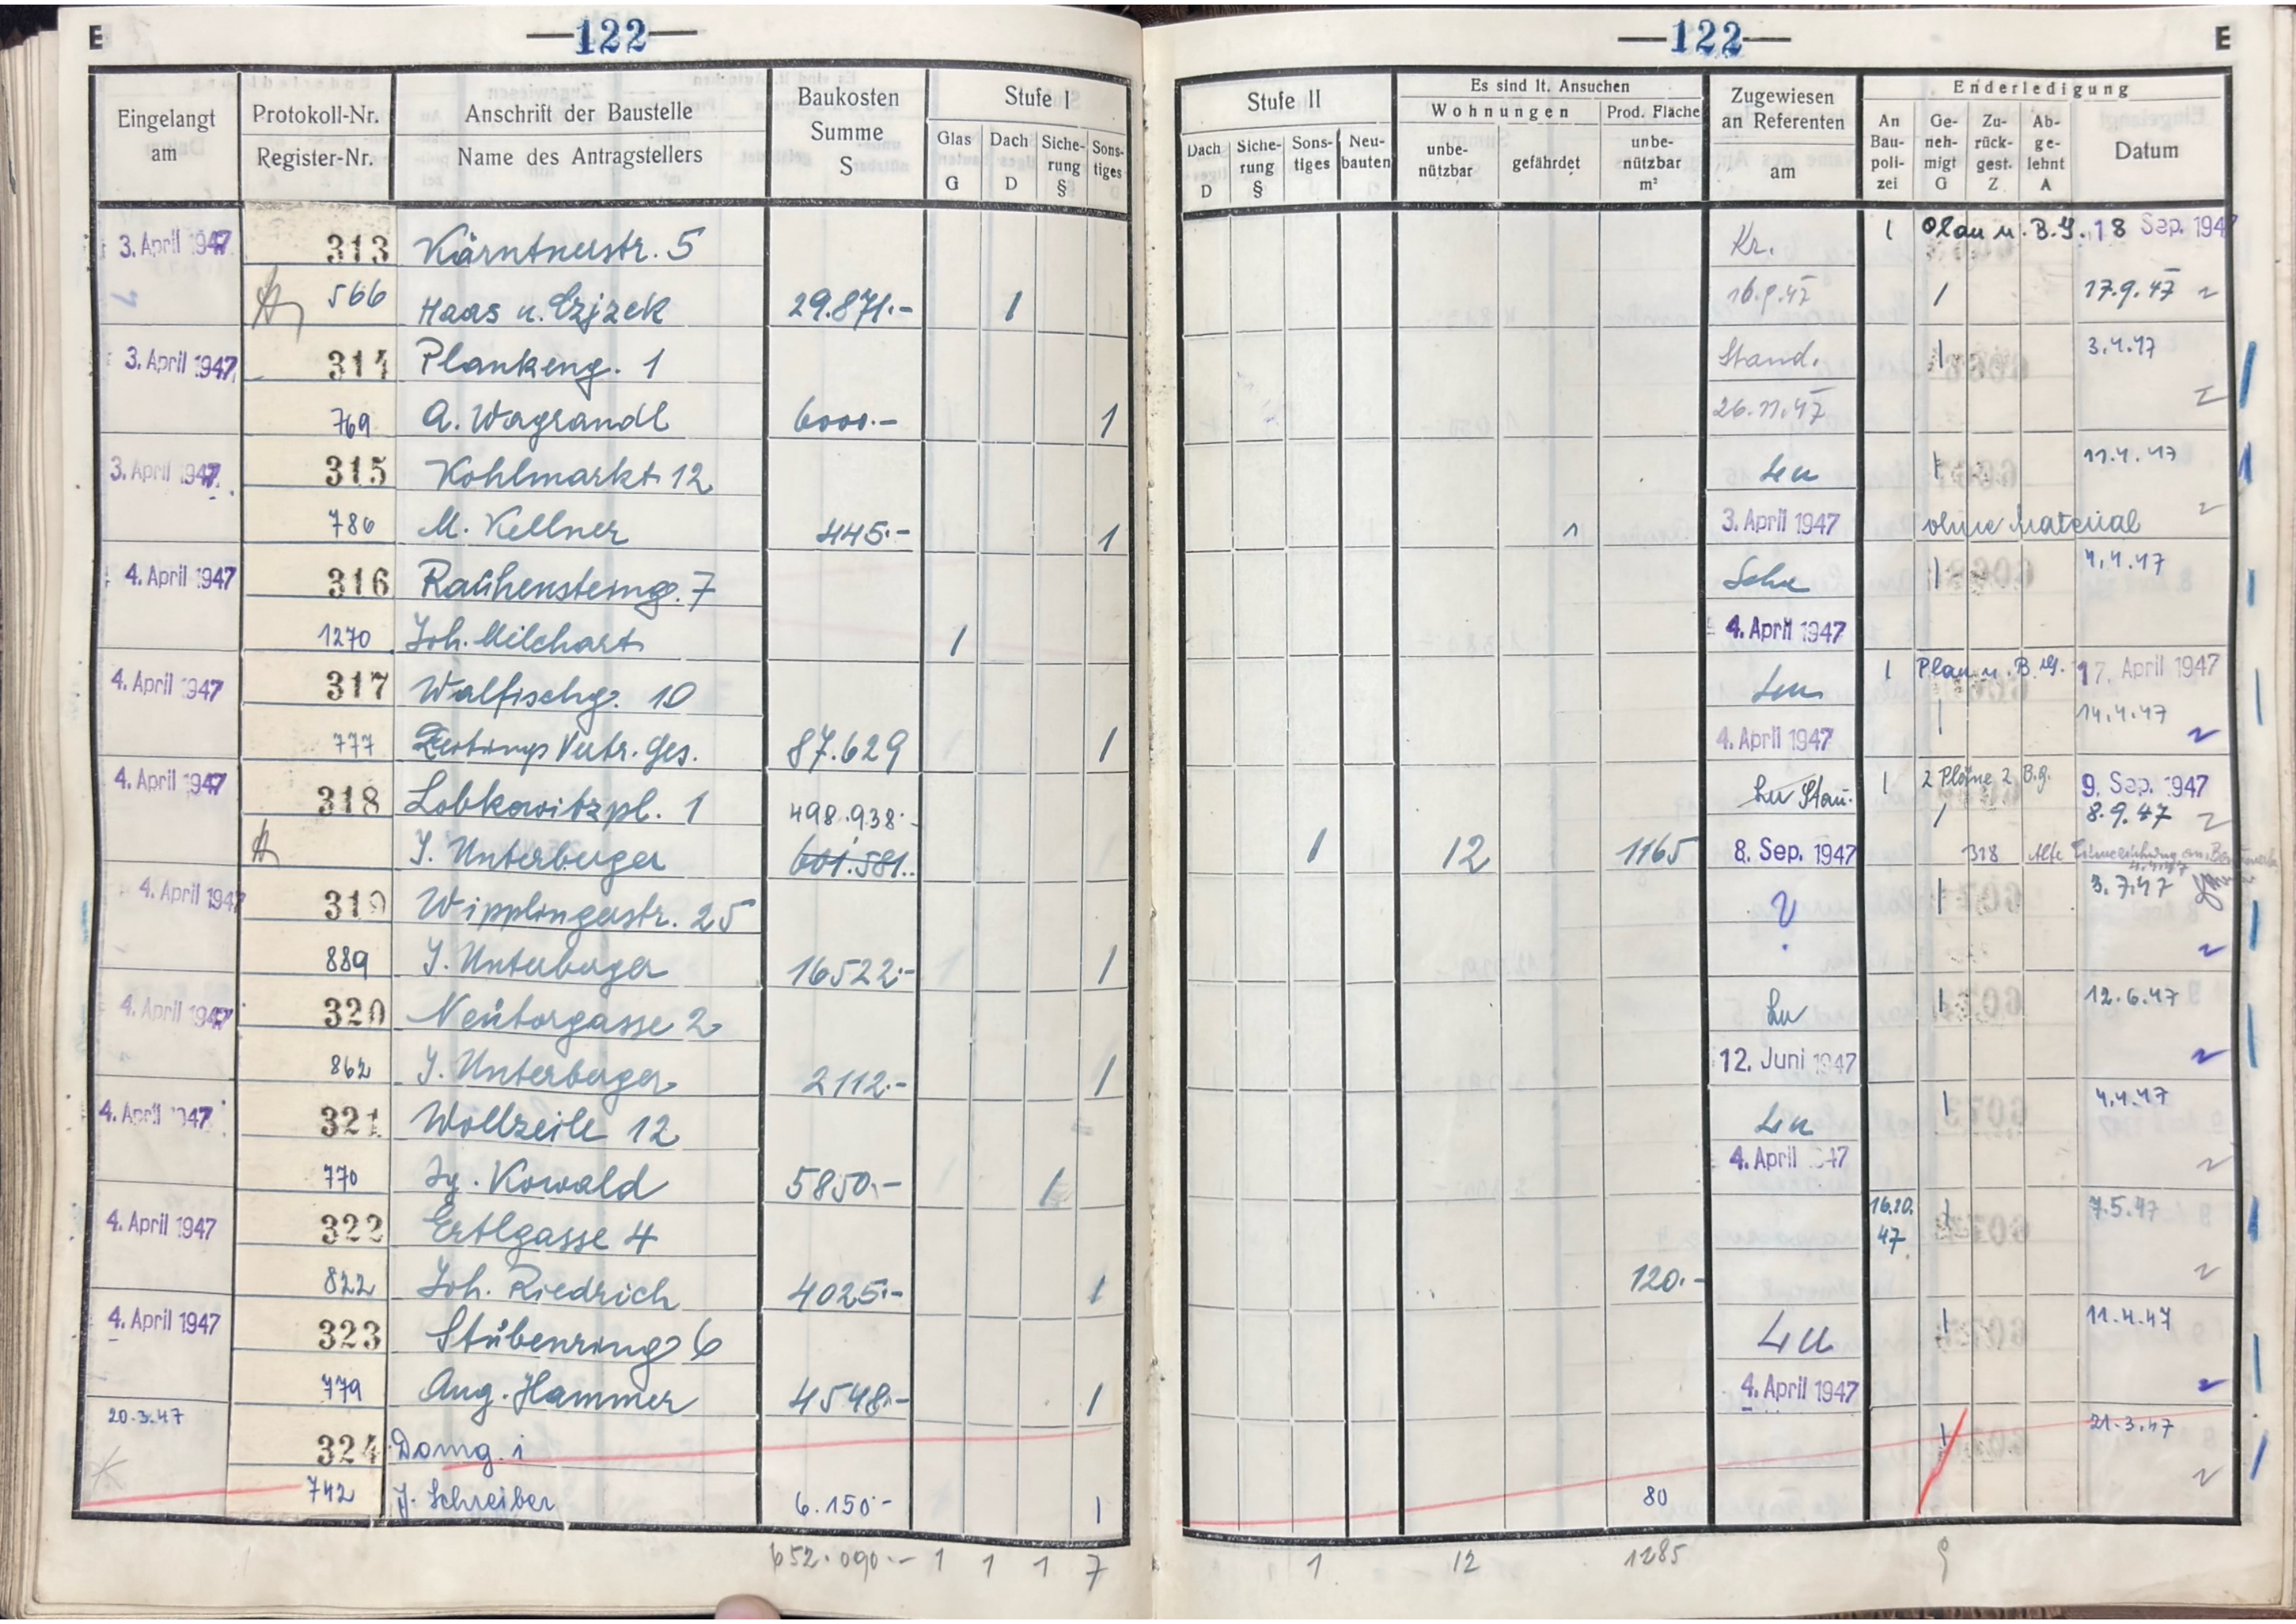 E —122— —122— E
Eingelangt am
Protokoll-Nr.
Register-Nr.
Anschrift der Baustelle
Name des Antragstellers
Baukosten Summe S
Stufe I
Glas G Dach D Siche-rung § Sons-tiges
Stufe II
Dach D Siche-rung § Sons-tiges Neu-bauten
Es sind lt. Ansuchen
Wohnungen Prod. Fläche
unbe-nützbar gefährdet unbe-nützbar m²
Zugewiesen an Referenten am
Enderledigung
An Bau-poli-zei Ge-neh-migt G Zu-rück-gest. Z Ab-ge-lehnt A Datum
3. April 1947 313 Kärntnerstr. 5 Kr. 1 Plan u. B.G. 18 Sep. 1947
566 Haas u. Czjzek 29.871.- 1 16.9.47 / 17.9.47
3. April 1947 314 Plankeng. 1 Stand. 1 3.4.47
769 A. Wagrandl 6000.- 1 26.11.47
3. April 1947 315 Kohlmarkt 12 Lu 1 11.4.47
786 M. Kellner 445.- 1 1 3. April 1947 ohne Material
4. April 1947 316 Rauhensteing. 7 1 4.4.47
1270 Joh. Milchart 1 4. April 1947
4. April 1947 317 Walfischg. 10 Lu 1 Plan u. B.G. 17. April 1947
777 Zeitungs Vertr. Ges. 87.629 1 4. April 1947 1 14.4.47
4. April 1947 318 Lobkowitzpl. 1 498.938.- Lu Stau. 1 2 Pläne 2 B.G. 9. Sep. 1947
/ 8.9.47
J. Unterberger 601.581.- 1 12 1165 8. Sep. 1947 318 Alte
4. April 1947 319 Wipplingerstr. 25 ? 1 3.7.47
889 J. Unterberger 16522.- 1
4. April 1947 320 Neutorgasse 2 Lu 1 12.6.47
862 J. Unterberger 2112.- 1 12. Juni 1947
4. April 1947 321 Wollzeile 12 Lu 1 4.4.47
770 Ig. Kowald 5850.- 1 4. April 1947
4. April 1947 322 Ertlgasse 4 16.10.47 1 7.5.47
822 Joh. Riedrich 4025.- 1 120.-
4. April 1947 323 Stubenring 6 Lu 1 11.4.47
779 Aug. Hammer 4548.- 1 4. April 1947
20.3.47 324 Domg. 1 1 21.3.47
742 J. Schreiber 6.150.- 1 80
652.090.- 1 1 1 7 1 12 1285 9